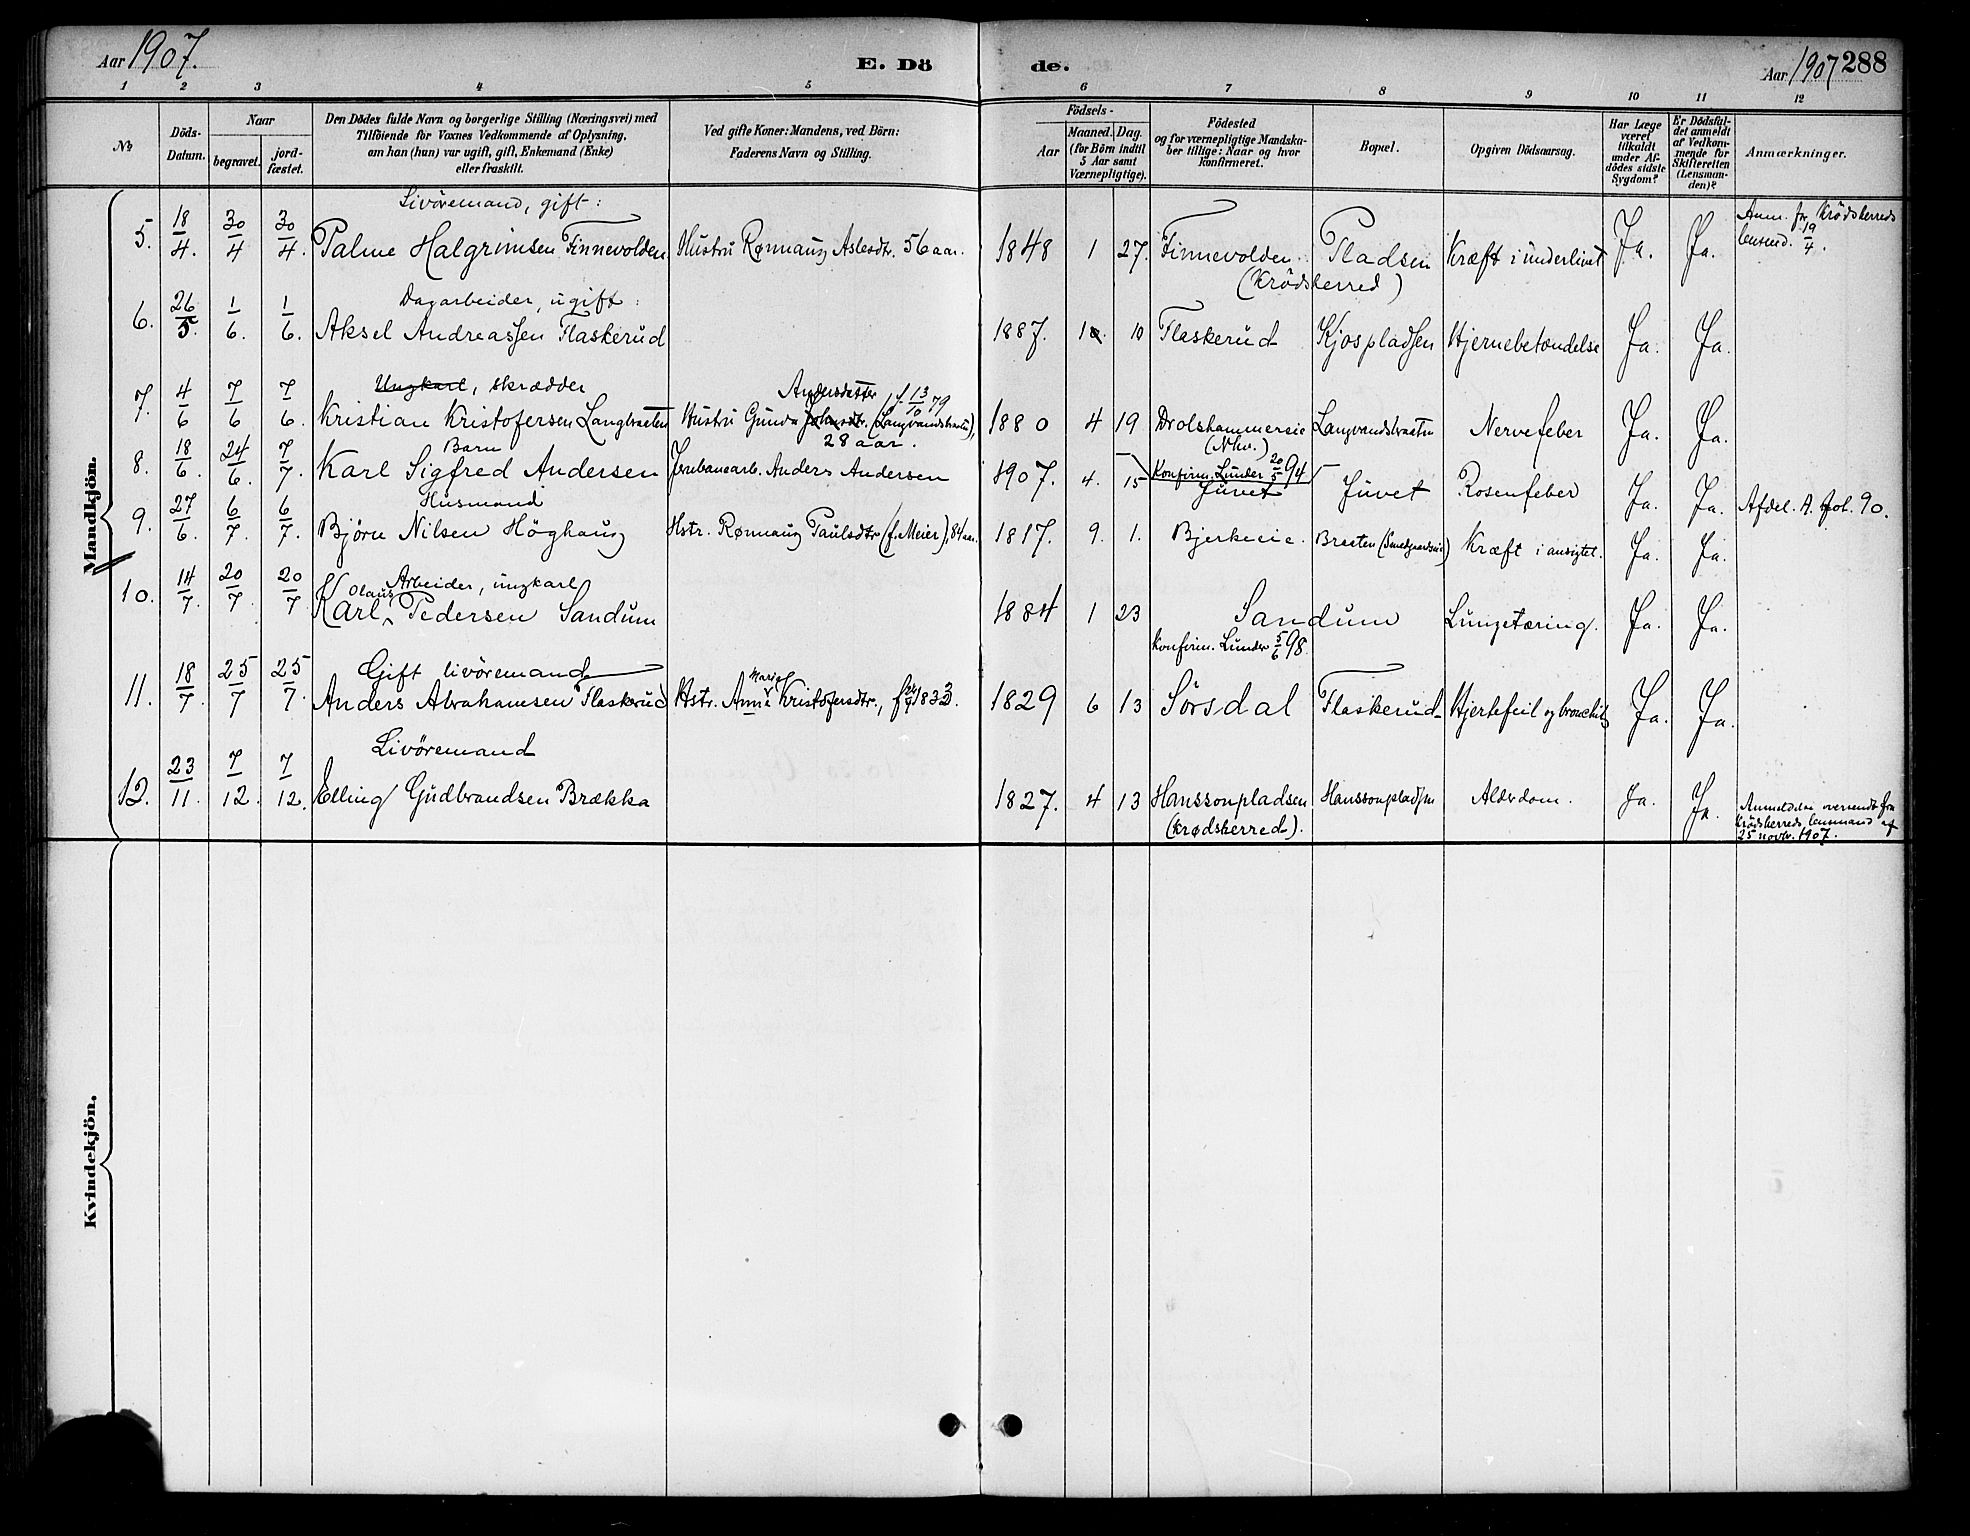 Aar 1907. E. Dö de. Aar 1907 288
1 2 3 4 5 6 7 8 9 10 11 12
No
Döds-Datum.
Naar
begravet.
jord-fæstet.
Den Dödes fulde Navn og borgerlige Stilling (Næringsvei) med
Tilföiende for Voxnes Vedkommende af Oplysning,
om han (hun) var ugift, gift, Enkemand (Enke)
eller fraskilt.
Ved gifte Koner: Mandens, ved Börn:
Faderens Navn og Stilling.
Födsels-
Aar
Maaned. Dag.
(for Börn indtil
5 Aar samt
Værnepligtige).
Födested
og for værnepligtige Mandska-
ber tillige: Naar og hvor
konfirmeret.
Bopæl.
Opgiven Dödsaarsag.
Har Læge
været
tilkaldt
under Af-
dödes sidste
Sygdom?
Er Dödsfal-
det anmeldt
af Vedkom-
mende for
Skifteretten
(Lensman-
den)?
Anmærkninger.
Mandkjön.
Livöremand, gift:
5. 18/4. 30/4 30/4. Palme Halgrimsen Finnevolden Hustru Rønnaug Aslesdtr. 56 aar. 1848 1 27. Finnevolden. Pladsen Kræft i underlivet Ja. Ja. Anm. fr. Krödsherreds
lensmd. 19/4.
(Krödsherred)
Dagarbeider, ugift:
6. 26/5. 1/6. 1/6. Aksel Andreassen Flaskerud 1887. 10 Flaskerud Kjospladsen Hjernebetændelse Ja. Ja.
Ungkarl, skrædder Andersdatter, f. 13/10 79
7. 4/6 7/6 7/6. Kristian Kristofersen Langbraaten Hustru Gunda Johnsdtr. (Langvandsbraaten), 1880 4 19 Drolshammereie Langvandsbraaten Nervefeber Ja. Ja.
28 aar. (Nhv.)
Konfirm. Lunder 20/5 94
Barn
8. 18/6. 24/6. 7/7. Karl Sigfred Andersen Jernbanearb. Anders Andersen 1907. 4. 15 Juvet Juvet Rosenfeber Ja. Ja. Afdel. A. fol. 90.
Husmand
9. 27/6. 6/7. 6/7. Björn Nilsen Höghaug Hstr. Rønnaug Paulsdtr (f. Meier), 84 aar. 1817. 9. 1. Bjerkeeie. Braaten (Smedgaardseie) Kræft i ansigtet. Ja. Ja.
Arbeider, ungkarl
10. 14/7. 20/7. 20/7 Karl Olaus Pedersen Sandum 1884 1 23 Sandum Lungetæring. Ja. Ja.
Konfirm. Lunder 5/6 98.
Gift livöremand
11. 18/7. 25/7 25/7. Anders Abrahamsen Flaskerud Hstr. Anne Marie Kristofersdtr., 1833. 1829 6 13 Sörsdal Flaskerud Hjertefeil og bronchit Ja. Ja.
Livöremand
12. 23/11. 7/12. 7/12. Elling Gudbrandsen Brækka 1827. 4 13 Hanssonpladsen Hanssonpladsen Alderdom. Ja. Ja. Anmeldelse oversendt fra
Krödsherreds lensmand af
25 novbr. 1907.
(Krødsherred).
Kvindekjön.